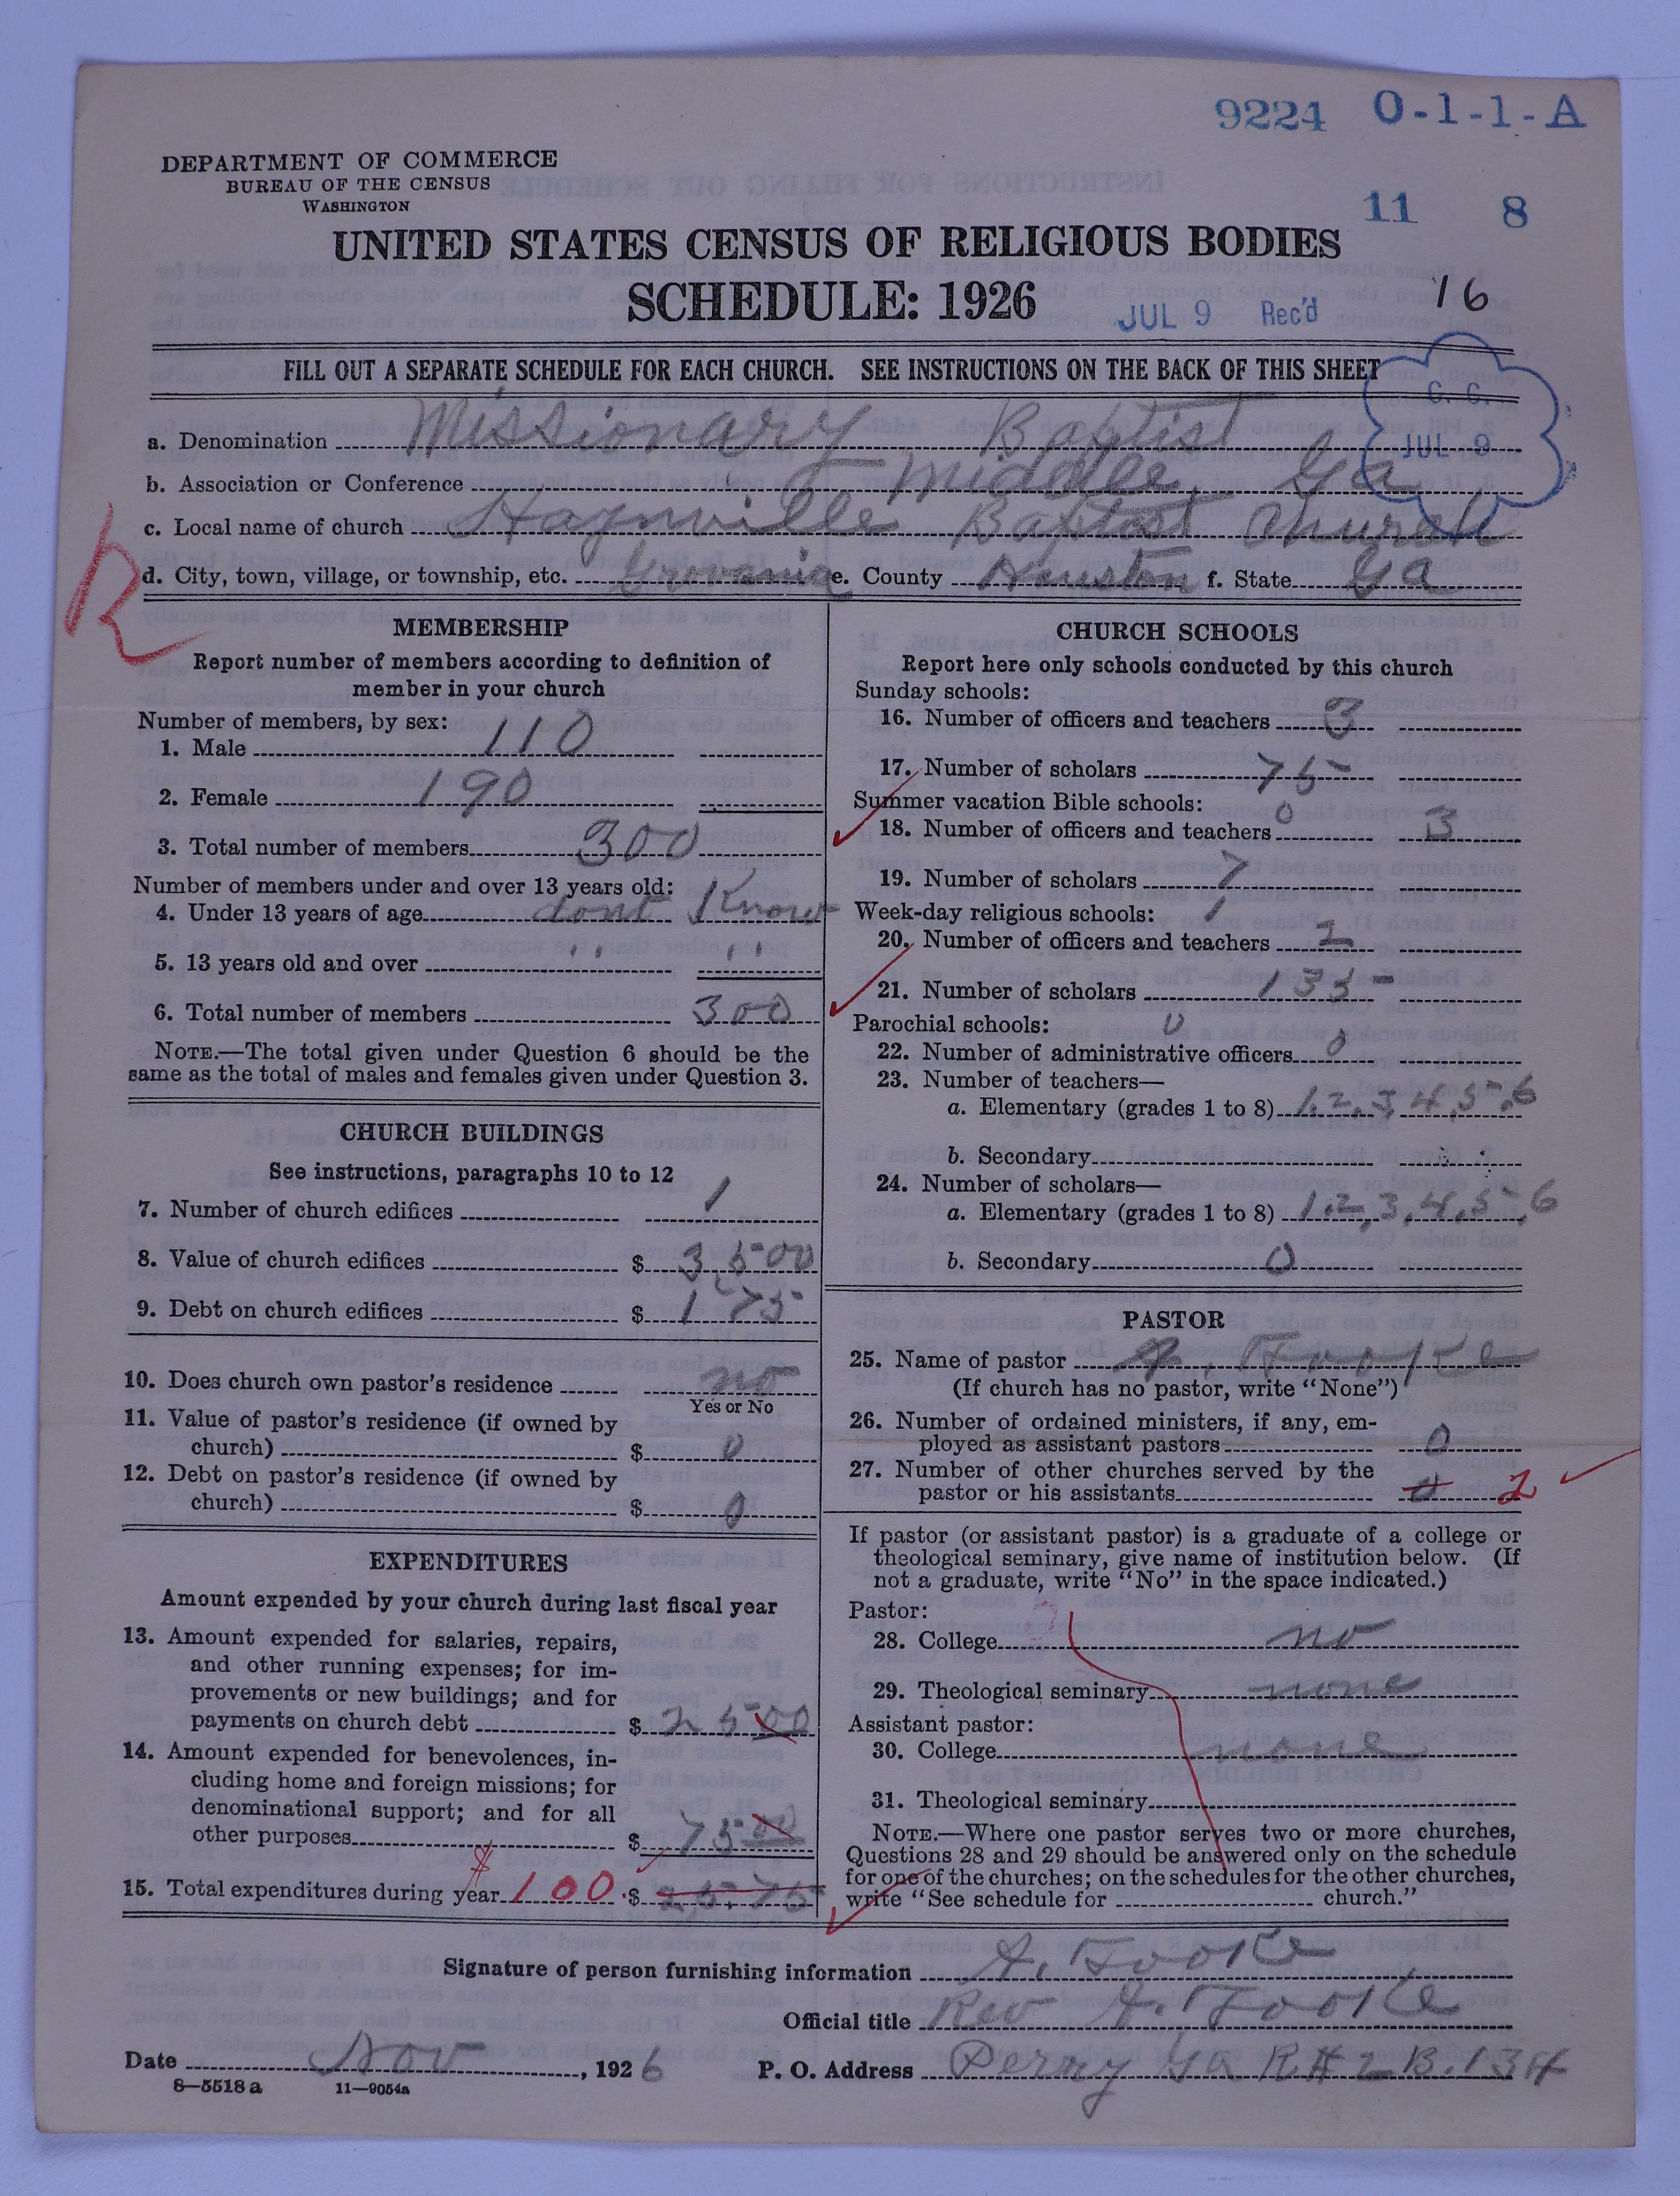 9224 O-1-1-A
DEPARTMENT OF COMMERCE
BUREAU OF THE CENSUS
WASHINGTON
11 8
UNITED STATES CENSUS OF RELIGIOUS BODIES
SCHEDULE: 1926
JUL 9 Rec'd
16
FILL OUT A SEPARATE SCHEDULE FOR EACH CHURCH. SEE INSTRUCTIONS ON THE BACK OF THIS SHEET
G. G.
JUL 9
a. Denomination Missionary Baptist
b. Association or Conference Middle Ga
c. Local name of church Haynville Baptist Church
d. City, town, village, or township, etc. Grovania e. County Houston f. State Ga
R
MEMBERSHIP
Report number of members according to definition of
member in your church
Number of members, by sex:
1. Male 110
2. Female 190
3. Total number of members 300
Number of members under and over 13 years old:
4. Under 13 years of age dont Know
5. 13 years old and over " "
6. Total number of members 300
NOTE.—The total given under Question 6 should be the
same as the total of males and females given under Question 3.
CHURCH BUILDINGS
See instructions, paragraphs 10 to 12
7. Number of church edifices 1
8. Value of church edifices $ 3,500
9. Debt on church edifices $ 175
10. Does church own pastor's residence no
Yes or No
11. Value of pastor's residence (if owned by
church) $ 0
12. Debt on pastor's residence (if owned by
church) $ 0
EXPENDITURES
Amount expended by your church during last fiscal year
13. Amount expended for salaries, repairs,
and other running expenses; for im-
provements or new buildings; and for
payments on church debt $ 25 00
14. Amount expended for benevolences, in-
cluding home and foreign missions; for
denominational support; and for all
other purposes $ 75 00
15. Total expenditures during year $100. $ 25.75
CHURCH SCHOOLS
Report here only schools conducted by this church
Sunday schools:
16. Number of officers and teachers 3
17. Number of scholars 75
Summer vacation Bible schools: 0
18. Number of officers and teachers 3
19. Number of scholars 7
Week-day religious schools: 1
20. Number of officers and teachers 2
21. Number of scholars 135
Parochial schools: 0
22. Number of administrative officers 0
23. Number of teachers—
a. Elementary (grades 1 to 8) 1,2,3,4,5,6
b. Secondary
24. Number of scholars—
a. Elementary (grades 1 to 8) 1,2,3,4,5,6
b. Secondary 0
PASTOR
25. Name of pastor A. Fooke
(If church has no pastor, write "None")
26. Number of ordained ministers, if any, em-
ployed as assistant pastors 0
27. Number of other churches served by the
pastor or his assistants 0 2
If pastor (or assistant pastor) is a graduate of a college or
theological seminary, give name of institution below. (If
not a graduate, write "No" in the space indicated.)
Pastor:
28. College no
29. Theological seminary none
Assistant pastor:
30. College none
31. Theological seminary
NOTE.—Where one pastor serves two or more churches,
Questions 28 and 29 should be answered only on the schedule
for one of the churches; on the schedules for the other churches,
write "See schedule for church."
Signature of person furnishing information A. Fooke
Official title Rev A. Fooke
Date Nov, 1926 P. O. Address Perry Ga R#2 B.134
8—5518 a 11—9054a